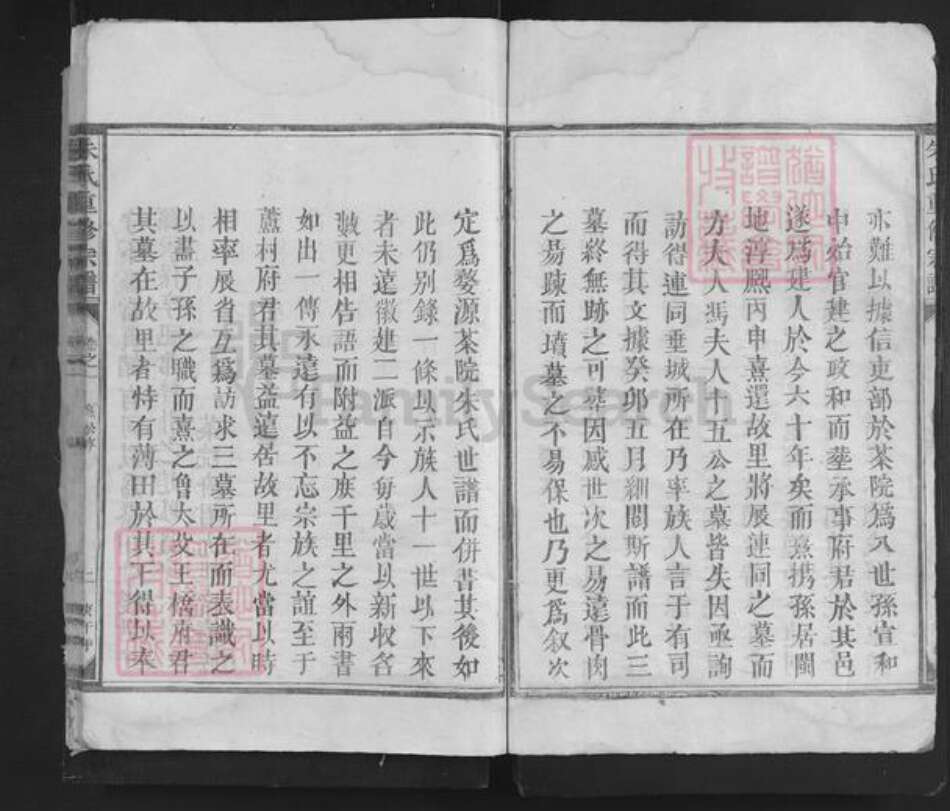 亦難以據信吏部於茶院為八世孫宣和
中始官建之政和而塟承事府君於其邑
遂為建人於今六十年矣而熹携孫居閩
地淳熈丙申熹還故里將展連同之墓而
方夫人馮夫人十五公之墓皆失因亟詢
訪得連同垂城所在乃率族人言于有司
而得其文據癸卯五月細閱斯譜而此三
墓終無跡之可尋因感世次之易逺骨肉
之易踈而墳墓之不易保也乃更為叙次
定為婺源茶院朱氏世譜而併書其後如
此仍別錄一條以示族人十一世以下來
者未逺徽建二派自今每歲當以新收各
數更相告語而附益之庻千里之外兩書
如出一傳永逺有以不忘宗族之誼至于
蘆村府君其墓益逺居故里者尤當以時
相率展省互為訪求三墓所在而表識之
以盡子孫之職而熹之魯大父王橋府君
其墓在故里者特有薄田於其下得以奉
朱氏重修宗譜
FamilySearch